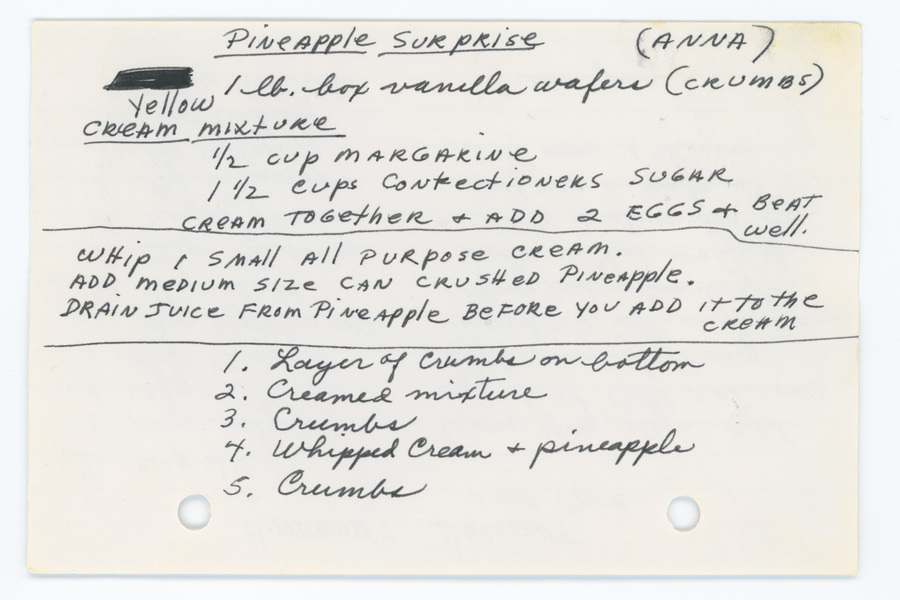 Pineapple Surprise (ANNA)
1 lb. box vanilla wafers (CRUMBS)
Yellow
CREAM mixture
1/2 cup MARGARINE
1 1/2 cups Confectioners SUGAR
CREAM TOGETHER + ADD 2 EGGS + BEAT
well.
WHip 1 SMALL All PURPOSE CREAM.
ADD medium SIZE CAN CRUSHED PINEApple.
DRAIN JUICE FROM PiNEApple BEFORE YOU ADD it to the
CREAM
1. Layer of Crumbs on bottom
2. Creamed mixture
3. Crumbs
4. Whipped Cream + pineapple
5. Crumbs